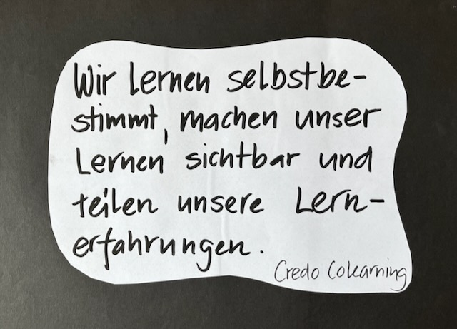 Wir lernen selbstbe-
stimmt, machen unser
Lernen sichtbar und
teilen unsere Lern-
erfahrungen.
Credo Colearning